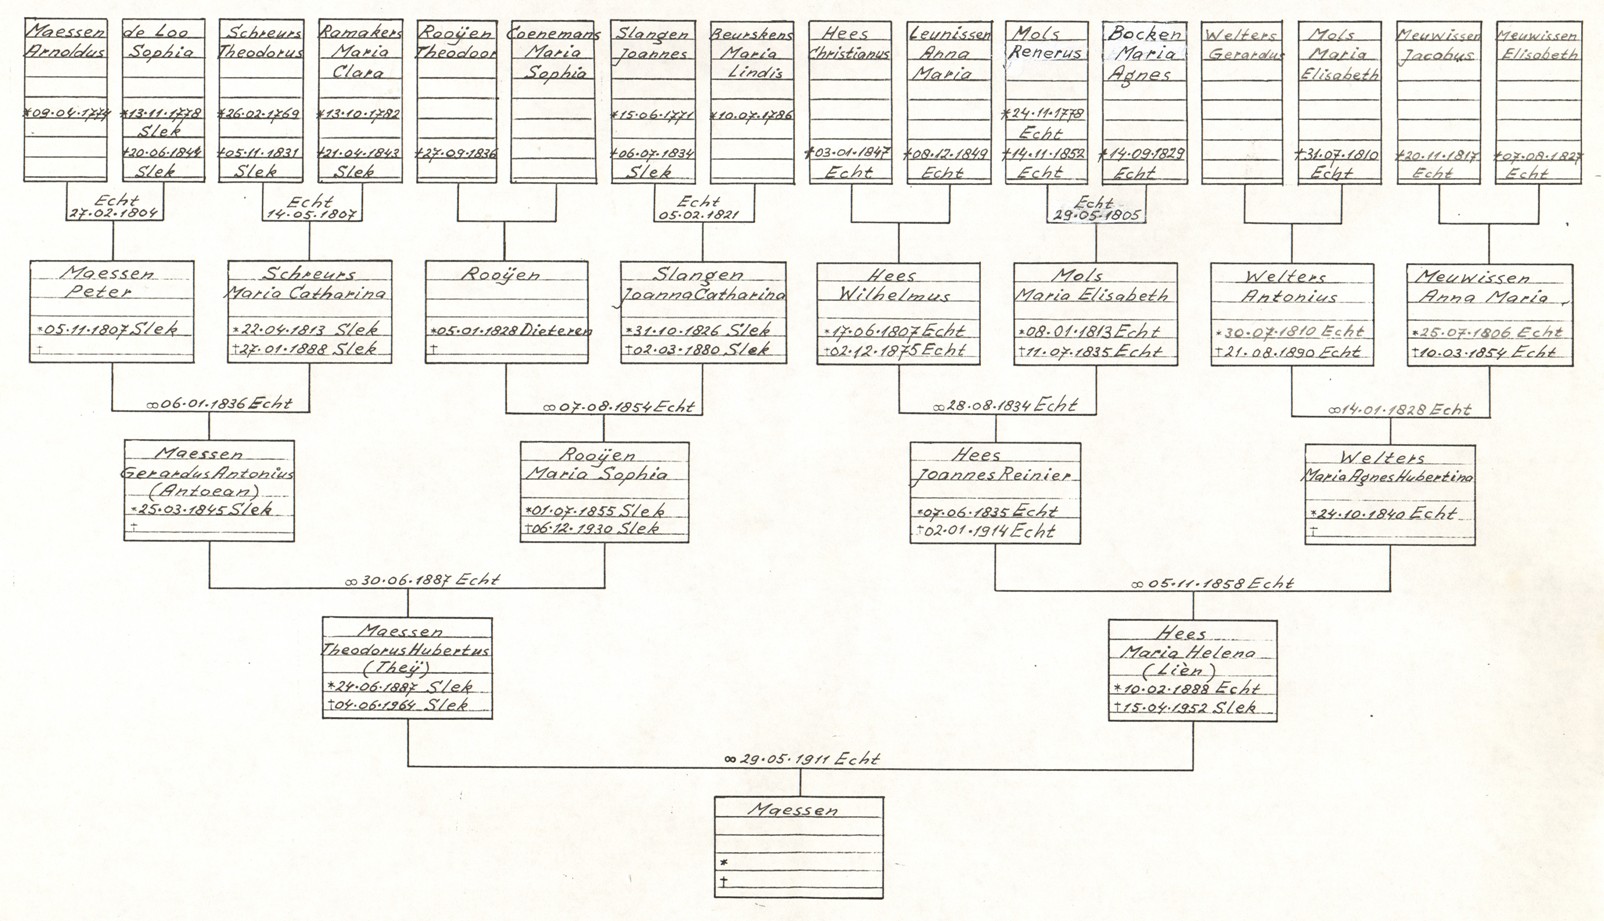 Maessen
Arnoldus
*09.04.1774
de Loo
Sophia
*13.11.1778
Slek
†20.06.1844
Slek
Schreurs
Theodorus
*26.02.1769
†05.11.1831
Slek
Ramakers
Maria
Clara
*13.10.1782
†21.04.1843
Slek
Rooÿen
Theodoor
†27.09.1836
Coenemans
Maria
Sophia
Slangen
Joannes
*15.06.1771
†06.07.1834
Slek
Beurskens
Maria
Lindis
*10.07.1786
Hees
Christianus
†03.01.1847
Echt
Leunissen
Anna
Maria
†08.12.1849
Echt
Mols
Renerus
*24.11.1778
Echt
†14.11.1852
Echt
Bocken
Maria
Agnes
†14.09.1829
Echt
Welters
Gerardus
Mols
Maria
Elisabeth
†31.07.1810
Echt
Meuwissen
Jacobus
†20.11.1817
Echt
Meuwissen
Elisabeth
†07.08.1827
Echt
Echt
27.02.1804
Echt
14.05.1807
Echt
05.02.1821
Echt
29.05.1805
Maessen
Peter
*05.11.1807 Slek
†
Schreurs
Maria Catharina
*22.04.1813 Slek
†27.01.1888 Slek
Rooÿen
*05.01.1828 Dieteren
†
Slangen
Joanna Catharina
*31.10.1826 Slek
†02.03.1880 Slek
Hees
Wilhelmus
*17.06.1807 Echt
†02.12.1875 Echt
Mols
Maria Elisabeth
*08.01.1813 Echt
†11.07.1835 Echt
Welters
Antonius
*30.07.1810 Echt
†21.08.1890 Echt
Meuwissen
Anna Maria
*25.07.1806 Echt
†10.03.1854 Echt
∞06.01.1836 Echt
∞07.08.1854 Echt
∞28.08.1834 Echt
∞14.01.1828 Echt
Maessen
Gerardus Antonius
(Antoean)
*25.03.1845 Slek
†
Rooÿen
Maria Sophia
*01.07.1855 Slek
†06.12.1930 Slek
Hees
Joannes Reinier
*07.06.1835 Echt
†02.01.1914 Echt
Welters
Maria Agnes Hubertina
*24.10.1840 Echt
†
∞30.06.1887 Echt
∞05.11.1858 Echt
Maessen
Theodorus Hubertus
(Theÿ)
*24.06.1887 Slek
†04.06.1964 Slek
Hees
Maria Helena
(Lièn)
*10.02.1888 Echt
†15.04.1952 Slek
∞29.05.1911 Echt
Maessen
*
†